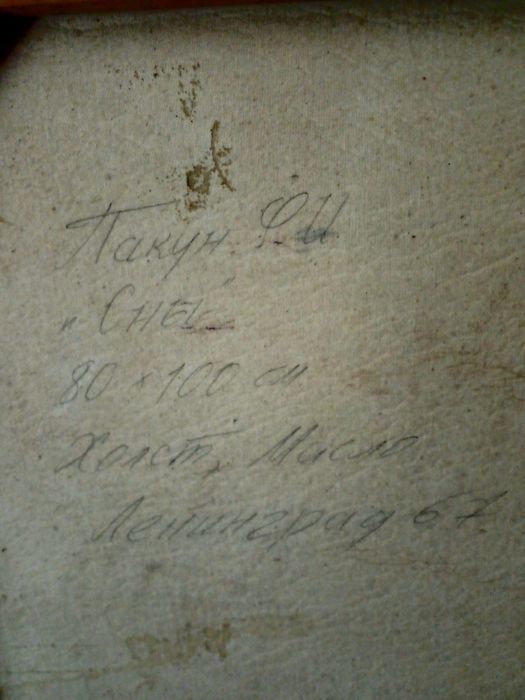 Пакун Ф.И
„Сны"
80 × 100 см
Холст, Масло
Ленинград 67